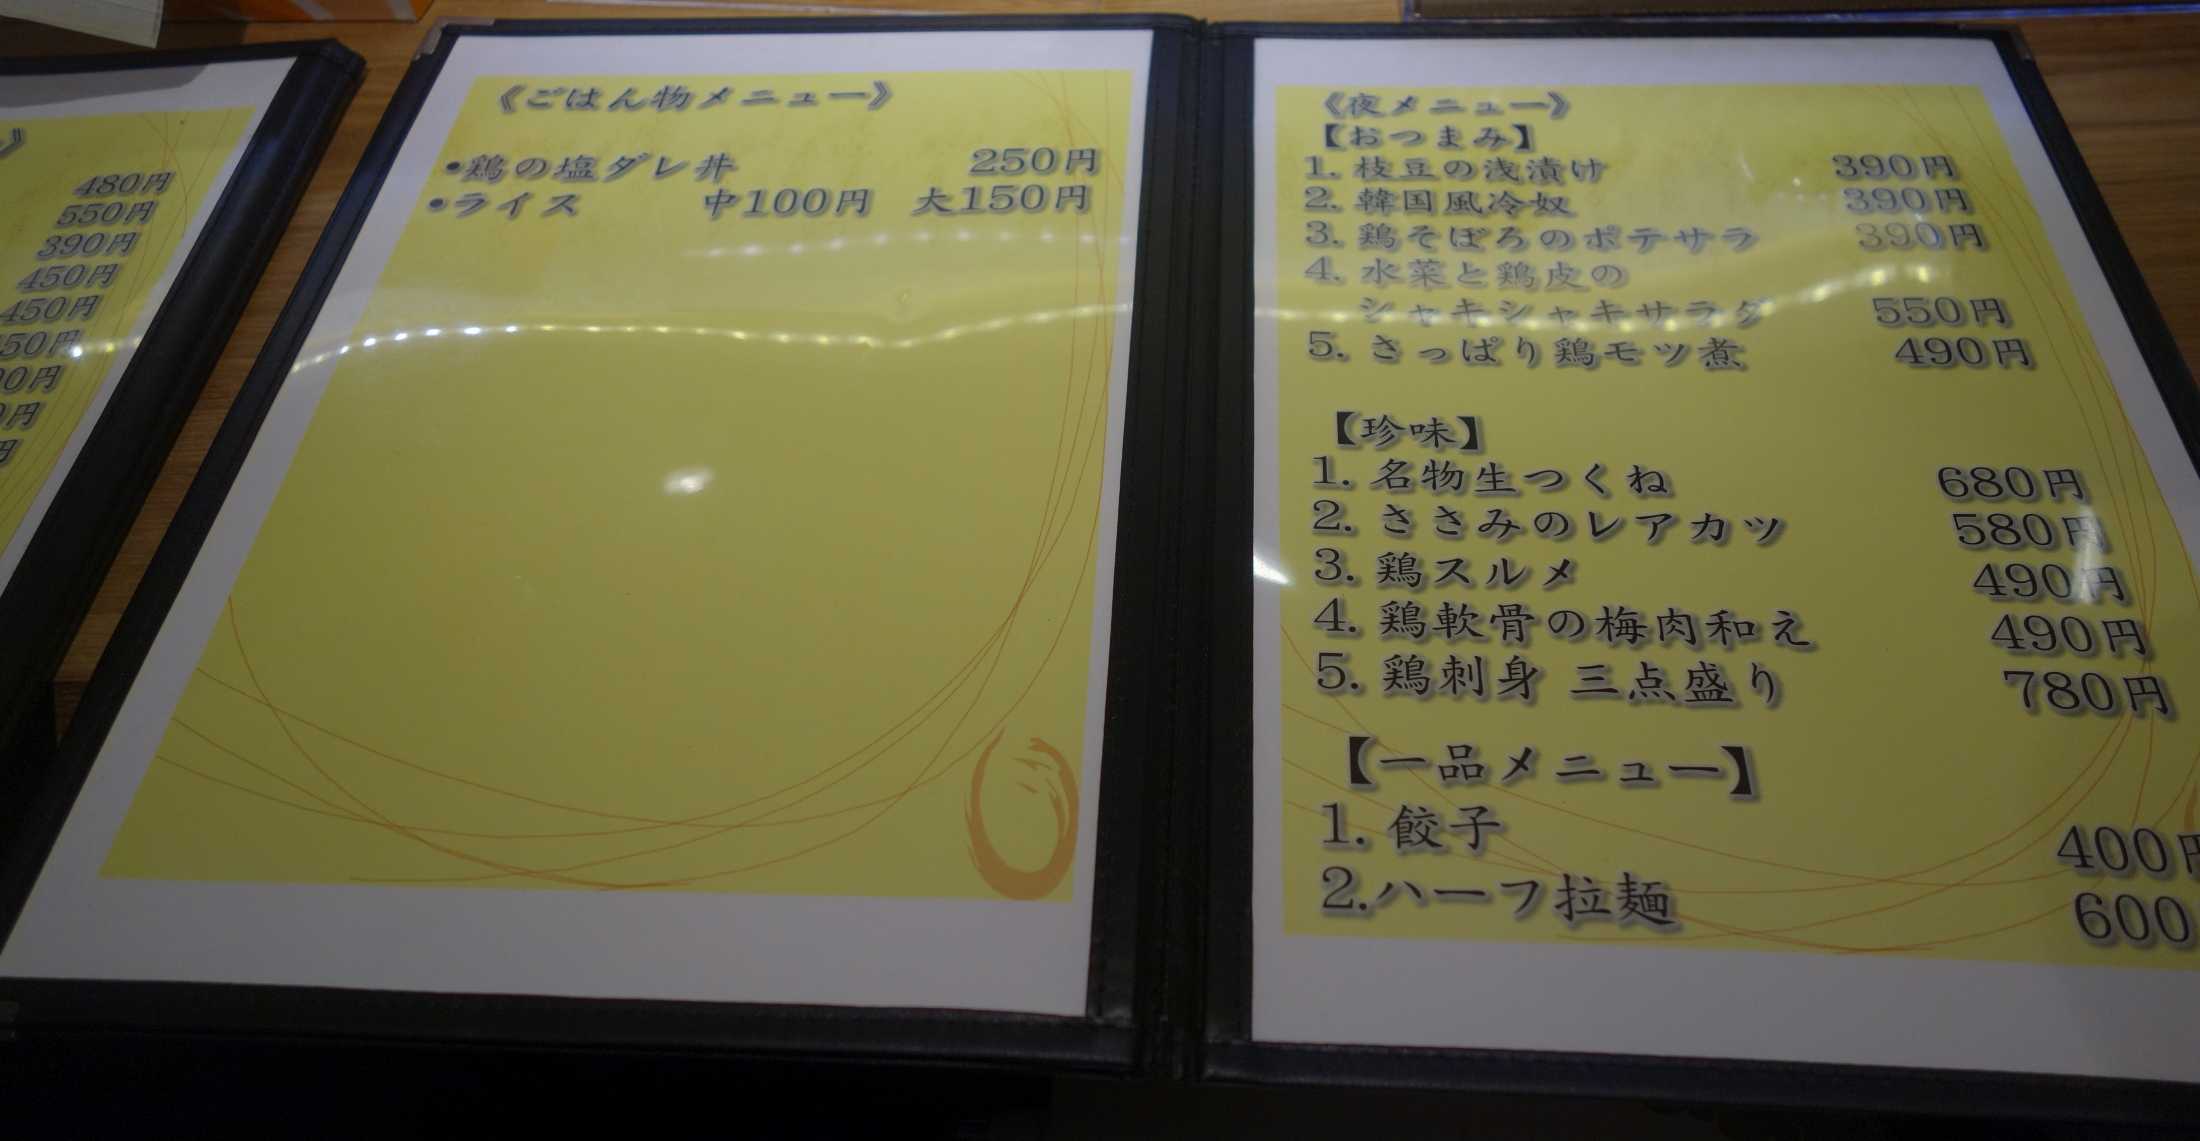 》
480円
550円
390円
450円
450円
50円
円
円
円
《ごはん物メニュー》
•鶏の塩ダレ丼 250円
•ライス 中100円 大150円
《夜メニュー》
【おつまみ】
1. 枝豆の浅漬け 390円
2. 韓国風冷奴 390円
3. 鶏そぼろのポテサラ 390円
4. 水菜と鶏皮の
シャキシャキサラダ 550円
5. さっぱり鶏モツ煮 490円
【珍味】
1. 名物生つくね 680円
2. ささみのレアカツ 580円
3. 鶏スルメ 490円
4. 鶏軟骨の梅肉和え 490円
5. 鶏刺身 三点盛り 780円
【一品メニュー】
1. 餃子 400円
2.ハーフ拉麺 600